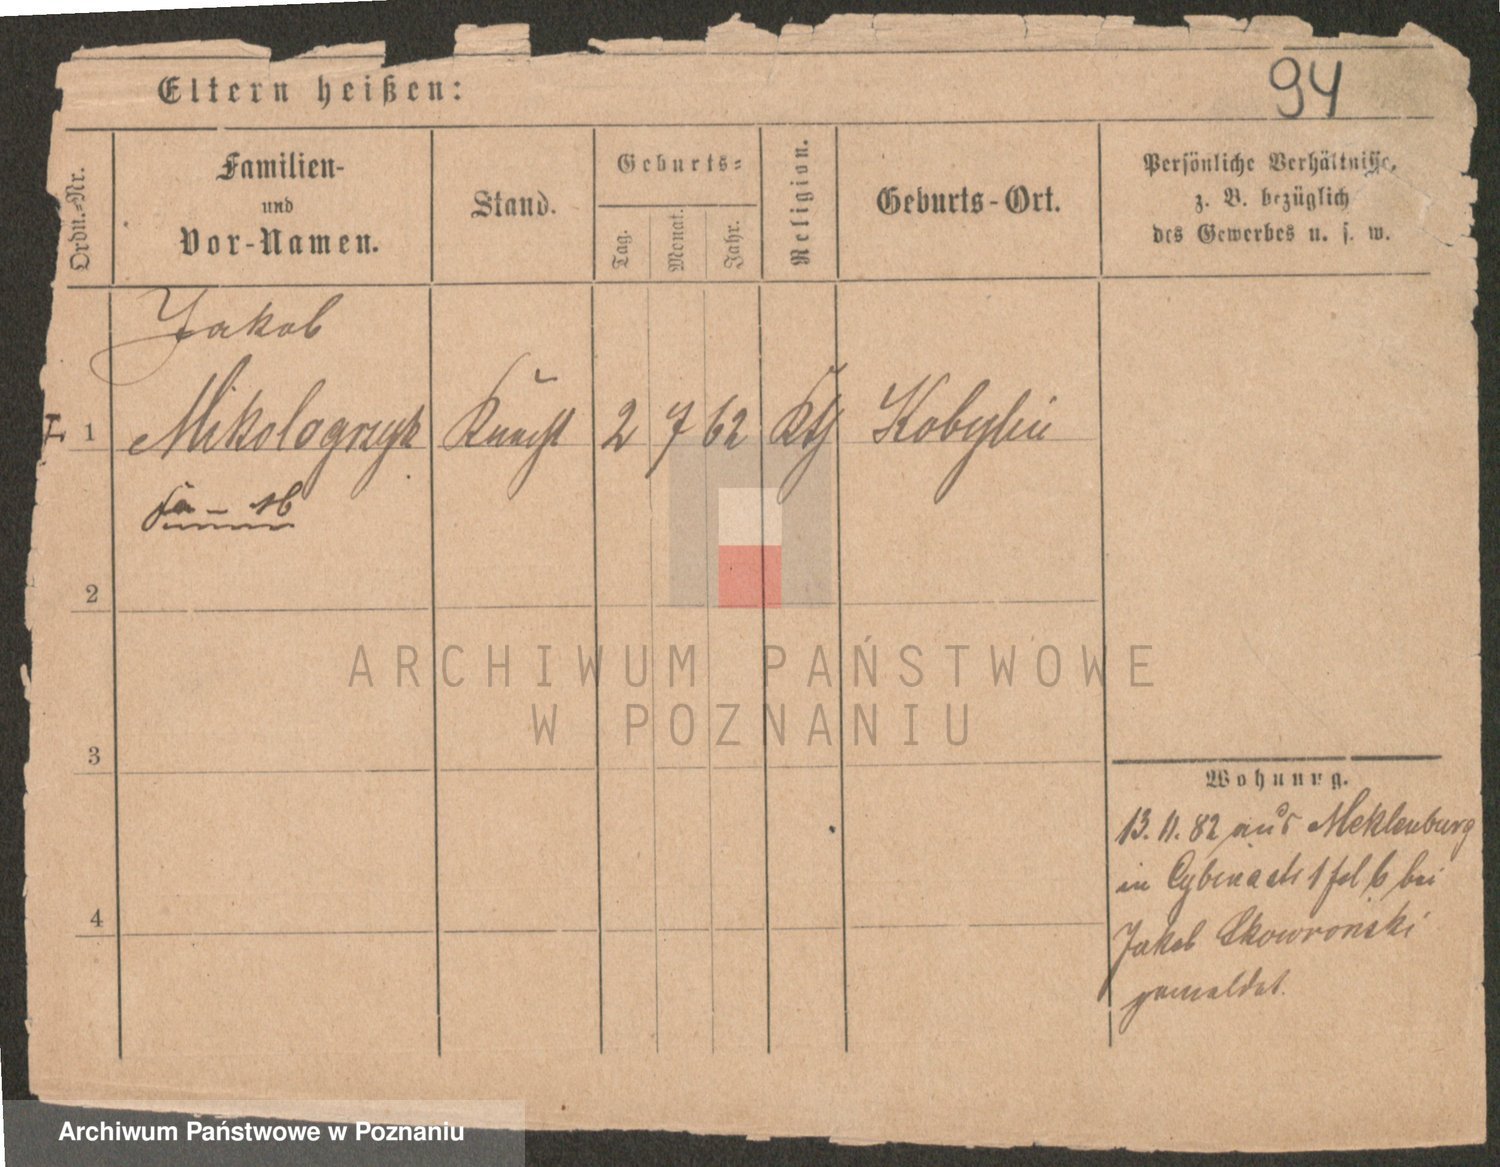 94
Eltern heißen:
Ordn.-Nr.
Familien-
und
Vor-Namen.
Stand.
Geburts-
Tag.
Monat.
Jahr.
Religion.
Geburts-Ort.
Persönliche Verhältnisse,
z. B. bezüglich
des Gewerbes u. s. w.
Jakob
1 Mikolagrzyk Knecht 2 7 62 Kth Kobylin
2
3
4
Wohnung.
13. 11. 82 aus Meklenburg
in 1 bei
Jakob Skowronski
gemeldet.
ARCHIWUM PAŃSTWOWE
W POZNANIU
Archiwum Państwowe w Poznaniu